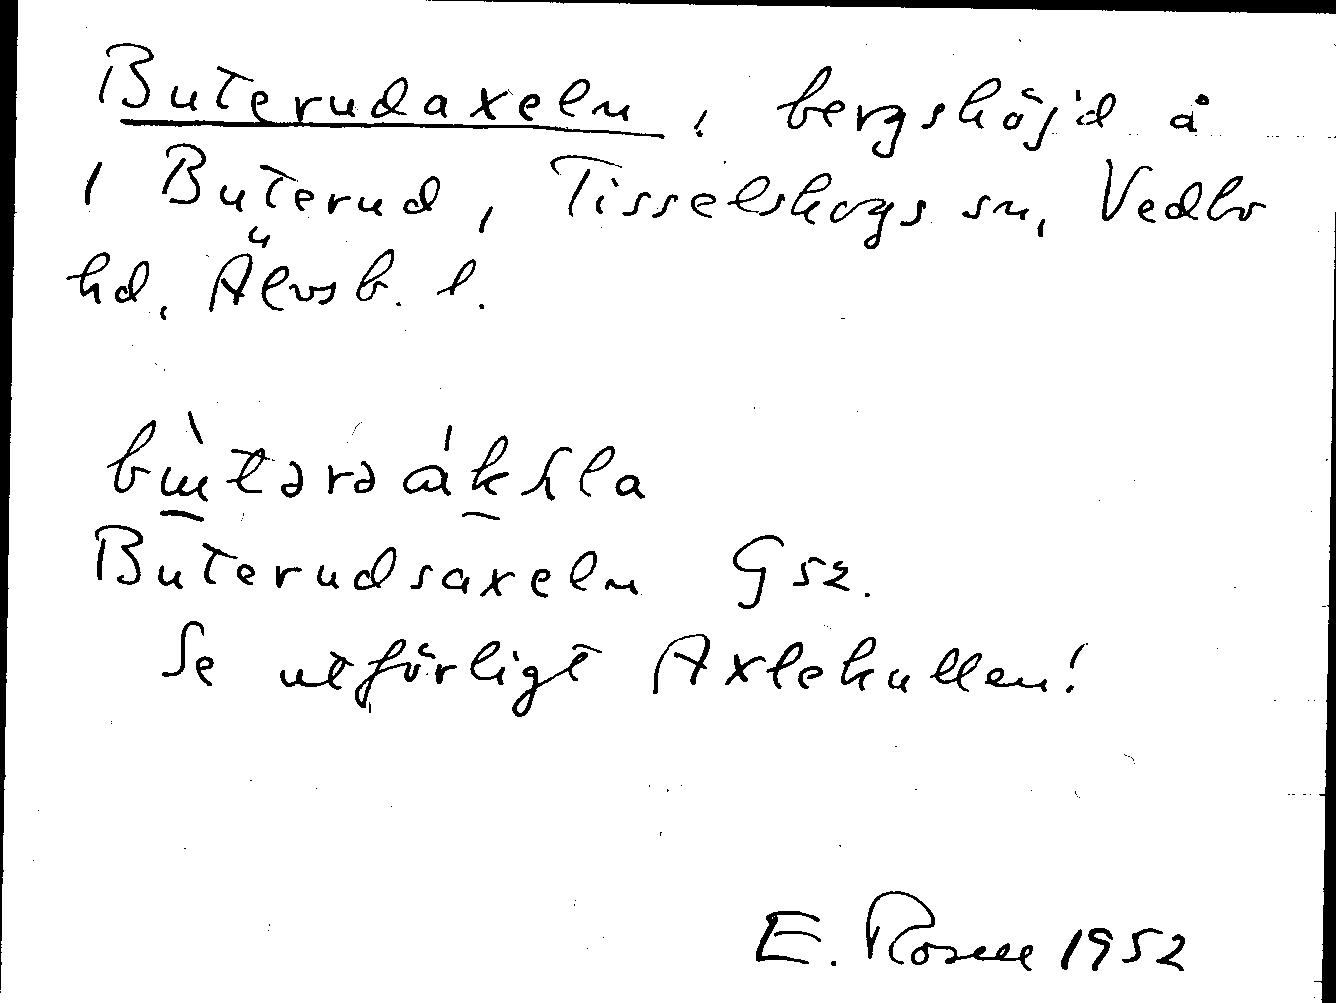 Buterudaxeln, bergshöjd å
1 Buterud, Tisselskogs sn, Vedbo
hd, Älvsb. l.
Buterudsaxeln Gsz.
Se utförligt Axlekullen!
E. Rosell 1952